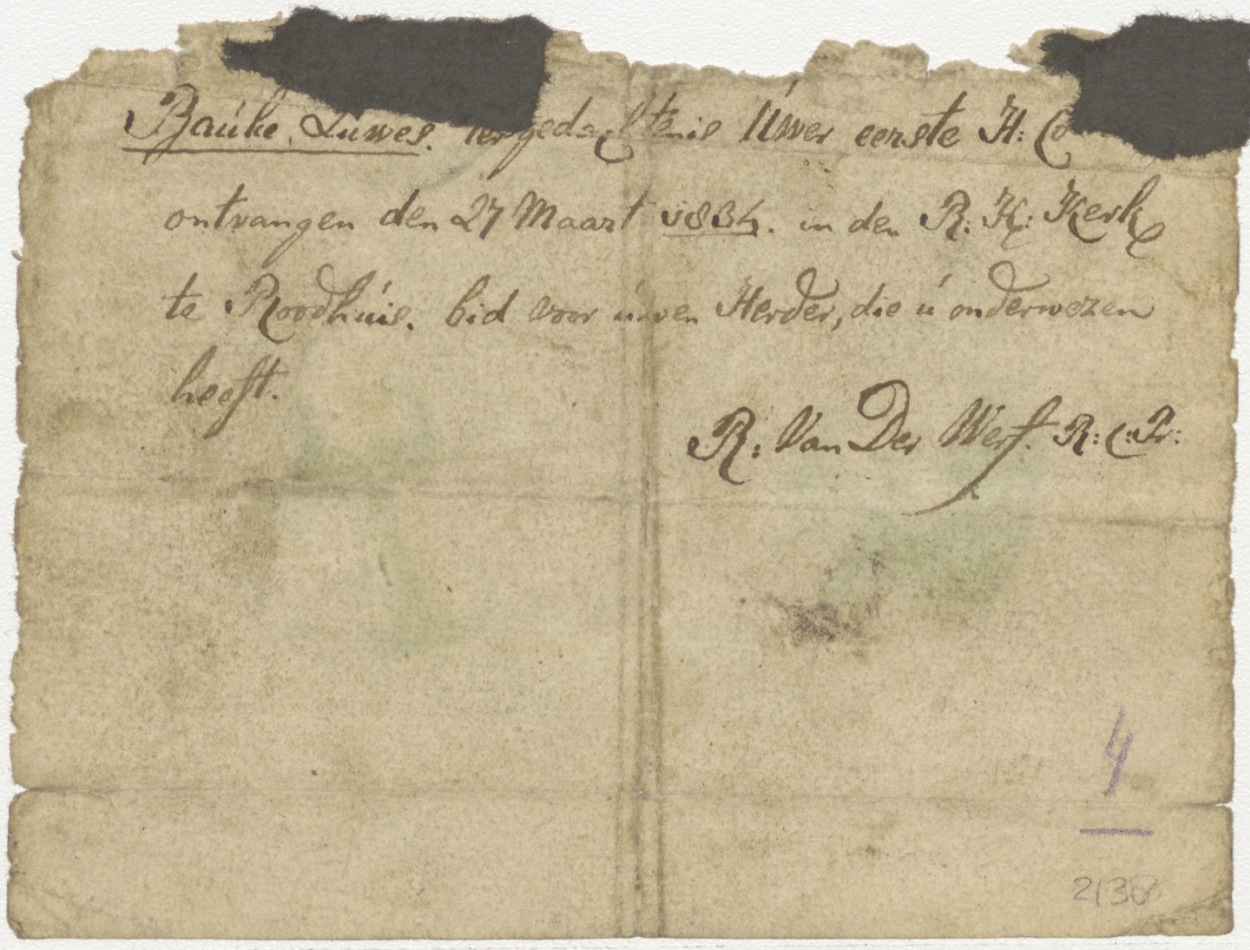 Bauke Luwes. ter gedachtenis Uwer eerste H: Co
ontvangen den 27 Maart 1834. in den R: K: Kerk
te Roodhuis. bid voor uwen Herder, die u onderwezen
heeft.
R: Van Der Werf. R: C: Pr:
4
2138